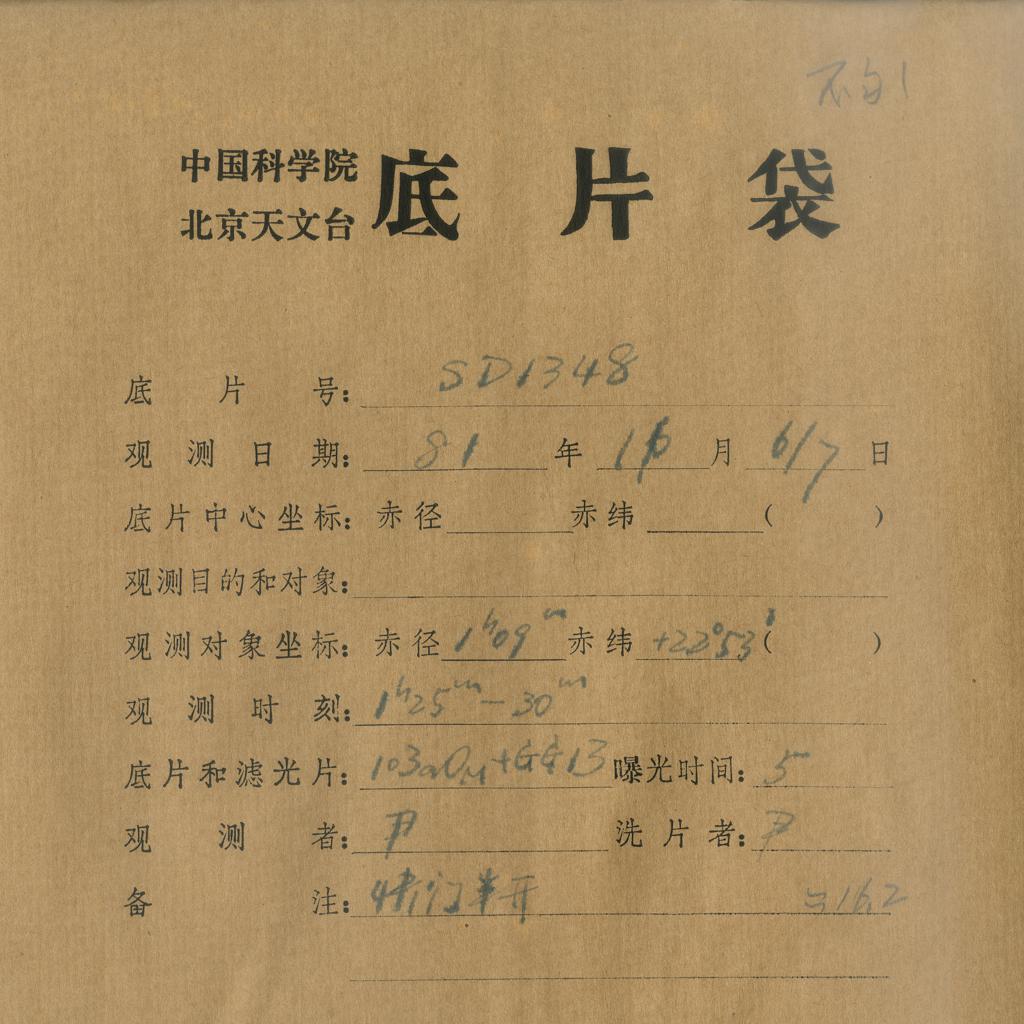 不匀!
中国科学院
北京天文台
底片袋
底片号: SD1348
观测日期: 81年 月 6/7日
底片中心坐标: 赤径 赤纬 ( )
观测目的和对象:
观测对象坐标: 赤径 1ʰ09ᵐ 赤纬 +22°53′( )
观测时刻: 1ʰ25ᵐ—30ᵐ
底片和滤光片: 103aO +GG13 曝光时间: 5ᵐ
观测者: 尹 洗片者: 尹
备注: 半开 16.2